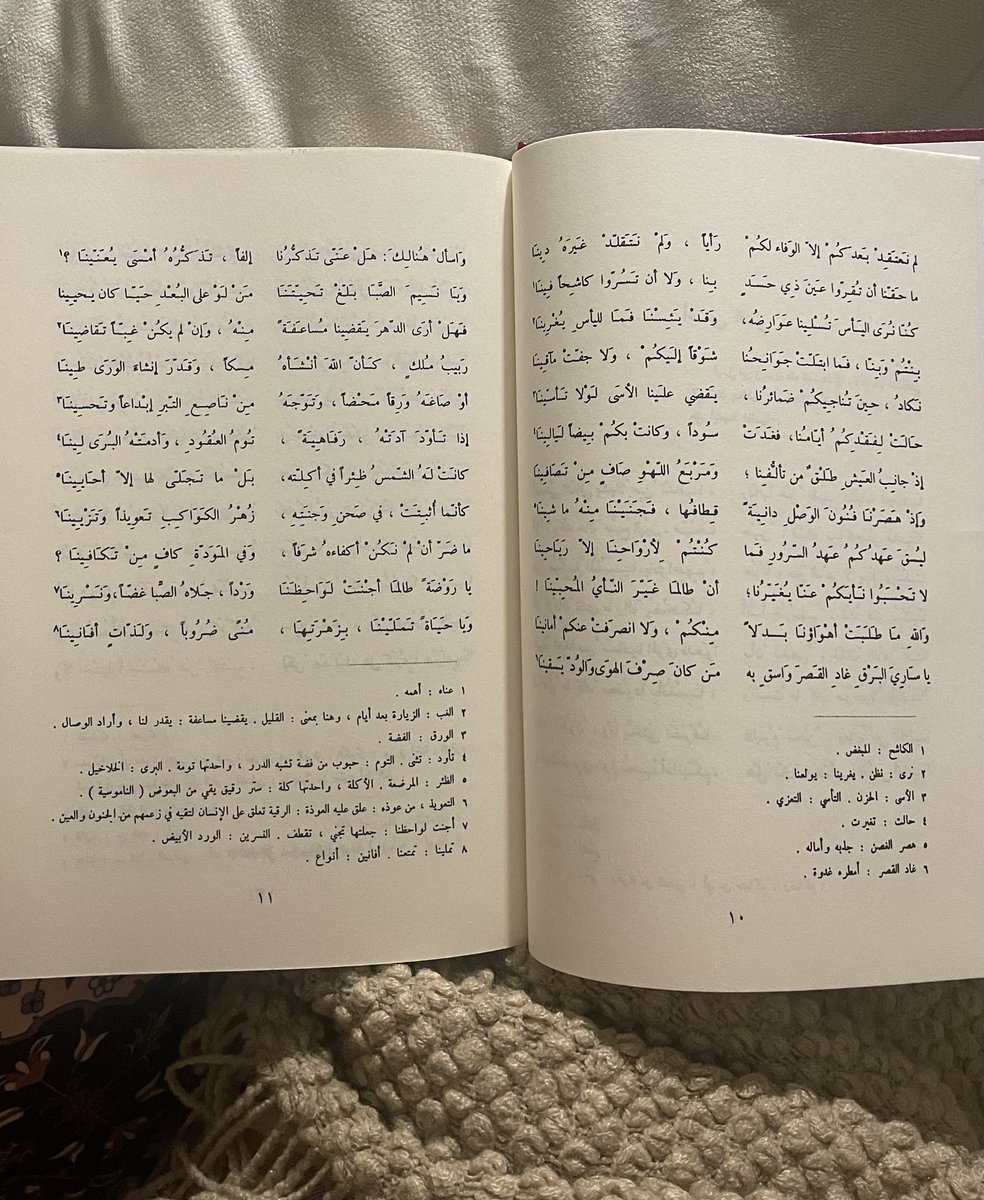 لم نَعتَقِدْ بَعدَكمْ إلاّ الوَفاء لكُمْ رَأياً ، ولَمْ نَتَقَلّدْ غَيرَهُ دِينَا
ما حَقّنا أن تُقِرّوا عَينَ ذي حَسَدٍ بِنا ، ولا أن تَسُرّوا كاشِحاً فِينَا١
كُنّا نُرَى اليَأسَ تُسْلِينا عَوَارِضُه، وَقَدْ يَئِسْنَا فَمَا لليأسِ يُغْرِينَا٢
بِنْتُمْ وَبِنّا ، فما ابتَلّتْ جَوَانِحُنَا شَوْقاً إلَيكُمْ ، ولا جفّتْ مآقِينَا
نَكادُ ، حِينَ تُناجيكُمْ ضَمائرُنا ، يَقضي علَينا الأسَى لَوْلا تأسّينَا٣
حَالَتْ لِفقدِكُمُ أيّامُنا، فغَدَتْ سُوداً ، وكانَتْ بكُمْ بِيضاً لَيَالِينَا٤
إذْ جانِبُ العَيشِ طَلْقٌ من تألُّفِنا ؛ وَمَرْبَعُ اللّهْوِ صَافٍ مِنْ تَصَافِينَا
وَإذْ هَصَرْنَا فُنُونَ الوَصْلِ دانِيَةً قِطافُها ، فَجَنَيْنَا مِنْهُ ما شِينَا٥
ليُسْقَ عَهدُكُمُ عَهدُ السّرُورِ فَمَا كُنْتُمْ لِأرْوَاحِنَا إلاّ رَيَاحِينَا
لا تَحْسَبُوا نَأيَكُمْ عَنّا يُغَيّرُنا ؛ أنْ طالَما غَيّرَ النّأيُ المُحِبّينَا !
وَاللهِ مَا طَلَبَتْ أهْوَاؤنَا بَدَلاً مِنْكُمْ ، ولا انصرَفتْ عنكمْ أمانينَا
يا سارِيَ البَرْقِ غادِ القَصرَ وَاسقِ به مَن كانَ صِرْفَ الهوَى وَالوُدّ يَسقينَا٦
١ الكاشح : المبغض .
٢ نرى : نظن . يغرينا : يولعنا .
٣ الأسى : الحزن . التأسي : التعزي .
٤ حالت : تغيرت .
٥ هصر الغصن : جذبه وأماله .
٦ غاد القصر : أمطره غدوة .
١٠
وَاسألْ هُنالِكَ: هَلْ عَنّى تَذكُّرُنا إلفاً ، تَذَكُّرُهُ أمْسَى يُعَنّينَا ؟١
وَيَا نَسِيمَ الصَّبَا بَلّغْ تَحِيّتَنَا مَنْ لَوْ على البُعْدِ حَيّا كان يحيِينا
فهَلْ أرَى الدّهرَ يَقضِينا مُساعَفَةً مِنْهُ ، وَإنْ لم يكُنْ غِبّاً تَقاضِينا٢
رَبيبُ مُلكٍ ، كَأنّ اللهَ أنْشَأهُ مِسكاً ، وَقَدّرَ إنشاءَ الوَرَى طِينَا
أوْ صَاغَهُ وَرِقاً مَحْضاً ، وَتَوّجَهُ مِنْ نَاصِعِ التّبرِ إبْداعاً وتَحسِينَا٣
إذا تَأوّدَ آدَتْهُ ، رَفَاهِيَةً ، تُومُ العُقُودِ ، وَأدمَتْهُ البُرَى لِينَا٤
كانَتْ لَهُ الشّمسُ ظِئراً في أكِلّته، بَلْ ما تَجَلّى لها إلاّ أحَايِينَا٥
كأنّما أُثبِتَتْ ، في صَحنِ وَجنَتِهِ ، زُهْرُ الكَوَاكِبِ تَعوِيذاً وَتَزيِينَا٦
ما ضَرّ أنْ لمْ نَكُنْ أكفاءه شَرَفاً ، وَفي المَوَدّةِ كافٍ مِنْ تَكَافِينَا ؟
يا رَوْضَةً طالَما أجْنَتْ لوَاحِظَنَا وَرْداً ، جلاهُ الصِّبا غضّاً، وَنَسْرِينَا٧
ويا حَيَاةً تَمَلّيْنَا ، بِزَهرَتِهَا ، مُنًى ضُرُوباً ، ولَذّاتٍ أفَانِينَا٨
١ عناه : أهمه .
٢ الغب : الزيارة بعد أيام ، وهنا بمعنى : القليل . يقضينا مساعفة : يقدر لنا ، وأراد الوصال .
٣ الورق : الفضة .
٤ تأود : تثنى . التوم : حبوب من فضة تشبه الدرر ، واحدتها تومة . البرى : الخلاخيل .
٥ الظئر : المرضعة . الأكلة ، واحدتها كلة : ستر رقيق يقي من البعوض ( الناموسية ) .
٦ التعويذ ، من عوذه : علق عليه العوذة : الرقية تعلق على الإنسان لتقيه في زعمهم من الجنون والعين .
٧ أجنت لواحظنا : جعلتها تجني ، تقطف . النسرين : الورد الأبيض .
٨ تملينا : تمتعنا . أفانين : أنواع .
١١